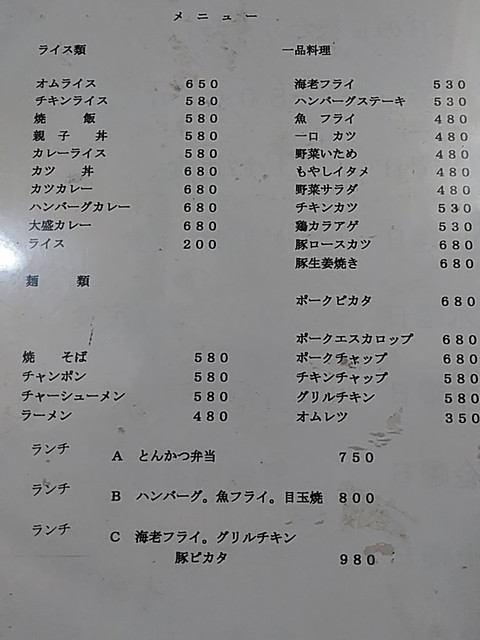 メニュー
ライス類
オムライス 650
チキンライス 580
焼飯 580
親子丼 580
カレーライス 580
カツ丼 680
カツカレー 680
ハンバーグカレー 680
大盛カレー 680
ライス 200
麺類
焼そば 580
チャンポン 580
チャーシューメン 580
ラーメン 480
一品料理
海老フライ 530
ハンバーグステーキ 530
魚フライ 480
一口カツ 480
野菜いため 480
もやしイタメ 480
野菜サラダ 480
チキンカツ 530
鶏カラアゲ 530
豚ロースカツ 680
豚生姜焼き 680
ポークピカタ 680
ポークエスカロップ 680
ポークチャップ 680
チキンチャップ 580
グリルチキン 580
オムレツ 350
ランチ A とんかつ弁当 750
ランチ B ハンバーグ。魚フライ。目玉焼 800
ランチ C 海老フライ。グリルチキン
豚ピカタ 980